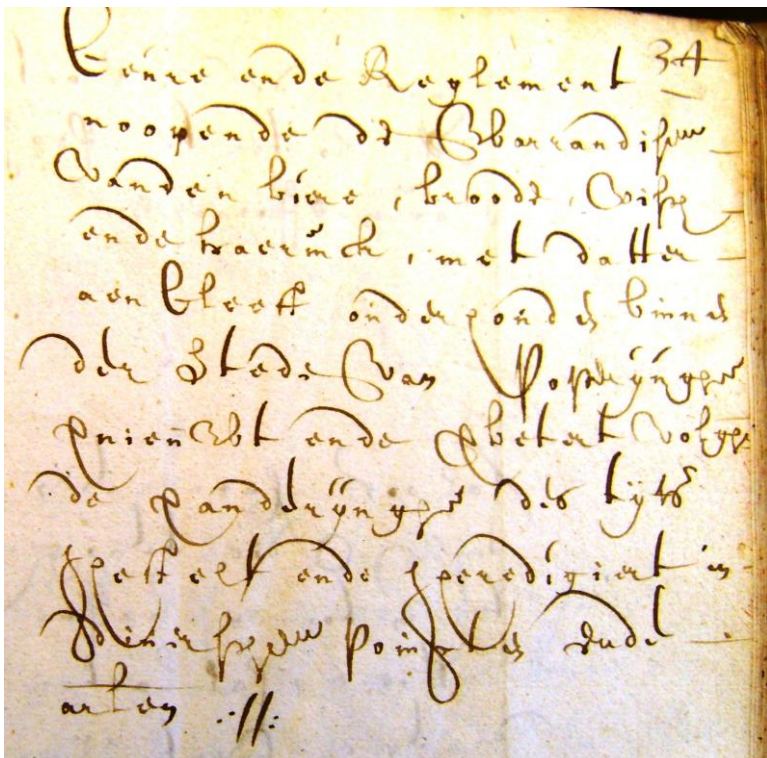 Keure ende Reglement 34
noopende de Warrandise
Vanden biere, broode, Visch
ende haerinck, met datter
aen Cleeft onderhouden binnen
der Stede Van Poperynghe
vernieuwt ende ghebetert volghen
de veranderynghe des tyts
ghestelt ende gheredigiert in
diversche Pointten ende
arlen